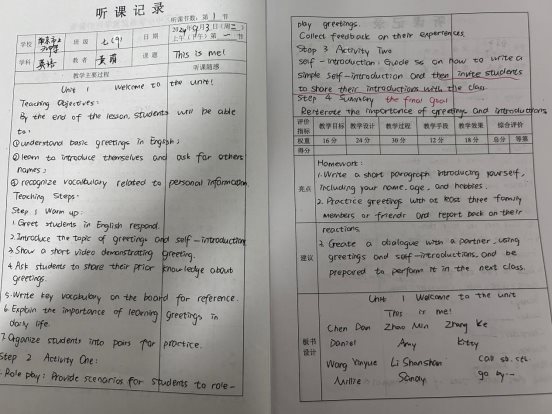 听课记录
听课节数:第1节
学校
班级
七(9)
日期
上午(下午)第一节
学科
英语
教者
课题
This is me!
教学主要过程
听课随感
Unit 1 Welcome to the unit!
Teaching Objectives:
By the end of the lesson, students will be able
to:
①understand basic greetings in English;
②learn to introduce themselves and ask for others
names;
③recognize vocabulary related to personal information
Teaching Steps:
Step 1 Warm up:
1. Greet students in English respond.
2. Introduce the topic of greetings and self-introduction
3. Show a short video demonstrating greeting.
4. Ask students to share their prior knowledge about
greetings.
5. Write key vocabulary on the board for reference.
6. Explain the importance of learning greetings in
daily life.
7. Organize students into pairs for practice.
Step 2 Activity One:
Role play: Provide scenarios for students to role-
play greetings.
Collect feedback on their experiences.
Step 3 Activity Two
self-introduction: Guide Ss on how to write a
simple self-introduction and then invite students
to share their introductions with the class.
Step 4 Summary the final goal
Reiterate the importance of greetings and introductions
评价指标 教学目标 教学设计 教学过程 教学手段 教学效果 综合评价
权重 16分 24分 30分 12分 18分 总分 等第
得分
亮点
Homework:
1. Write a short paragraph introducing yourself,
including your name, age, and hobbies.
2. Practice greetings with at least three family
members or friends and report back on their
reactions.
建议
3. Create a dialogue with a partner, using
greetings and self-introductions, and be
prepared to perform it in the next class.
板书设计
Unit 1 Welcome to the unit
This is me!
Chen Dan Zhao Min Zhang Ke
Daniel Amy Kitty
Wang Yinyue Li Shanshan call sb. sth.
Millie Sandy go by...